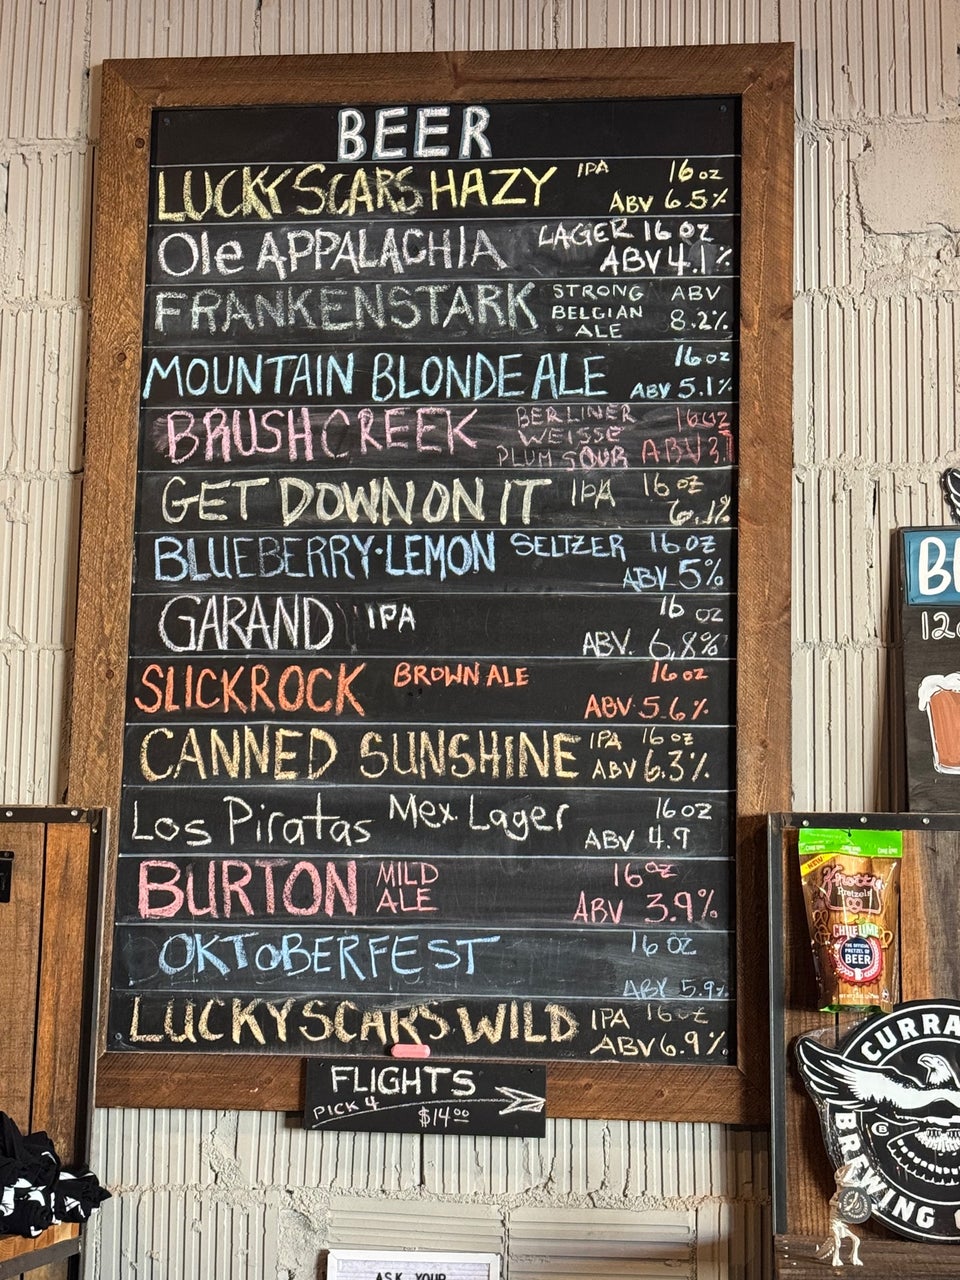 BEER
LUCKY SCARS HAZY IPA 16 oz
ABV 6.5%
Ole APPALACHIA LAGER 16 oz
ABV 4.1%
FRANKENSTARK STRONG BELGIAN ALE ABV
8.2%
MOUNTAIN BLONDE ALE 16 oz
ABV 5.1%
BRUSH CREEK BERLINER WEISSE PLUM SOUR 16 oz
ABV 3.
GET DOWN ON IT IPA 16 oz
6.1%
BLUEBERRY·LEMON SELTZER 16 oz
ABV 5%
GARAND IPA 16 oz
ABV. 6.8%
SLICKROCK BROWN ALE 16 oz
ABV 5.6%
CANNED SUNSHINE IPA 16 oz
ABV 6.3%
Los Piratas Mex. Lager 16 oz
ABV 4.9
BURTON MILD ALE 16 oz
ABV 3.9%
OKToBERFEST 16 oz
ABV 5.9%
LUCKY SCARS WILD IPA 16 oz
ABV 6.9%
FLIGHTS
PICK 4
$14.00
ASK YOUR
NEW
Pretzels
CHILE LIME
THE OFFICIAL
PRETZEL OF
BEER
CURRA
BREWING
B
12